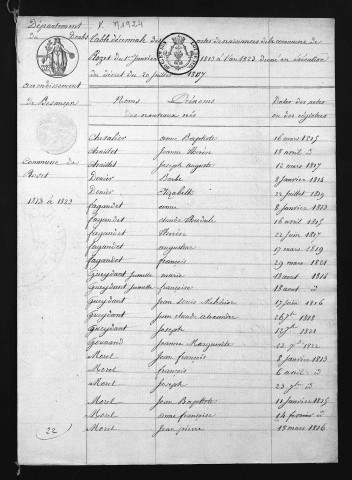 Département du Doubs
N 1924
Table décennale des actes de naissances de la commune de
Rozet du 1er Janvier 1813 à l'an 1823 dressé en exécution
du décret du 20 Juillet 1807
arrondissement de Besançon
commune de Rozet
1813 à 1823
Noms des nouveaux nés Prénoms Dates des actes ou des registres
Chevalier anne Baptiste 16 mars 1815
Chaillet Jeanne Thérèse 18 avril d
Chaillet Joseph auguste 12 mars 1817
Denier Barbe 8 Janvier 1814
Denier Elizabeth 22 Juillet 1819
fagandet anne 8 Janvier 1813
fagandet claude Theodule 16 avril 1815
fagandet Thérèse 22 Juin 1817
fagandet augustine 17 mars 1819
fagandet françois 29 mars 1821
Gueydant Jumelle marie 18 aout 1814
Gueydant Jumelle françoise 18 aout d
Gueydant Jean Louis Melchior 17 Juin 1816
Gueydant Jean claude alexandre 26 7bre 1818
Gueydant Joseph 1821
Gounand Jeanne Marguerite 12 9bre 1822
Morel Jean françois 8 Janvier 1813
Morel françois 6 avril d
Morel Joseph 23 7bre d
Morel Jean Baptiste 11 Janvier 1815
Morel anne françoise 24 fevrier d
Morel Jean pierre 18 mars 1816
22